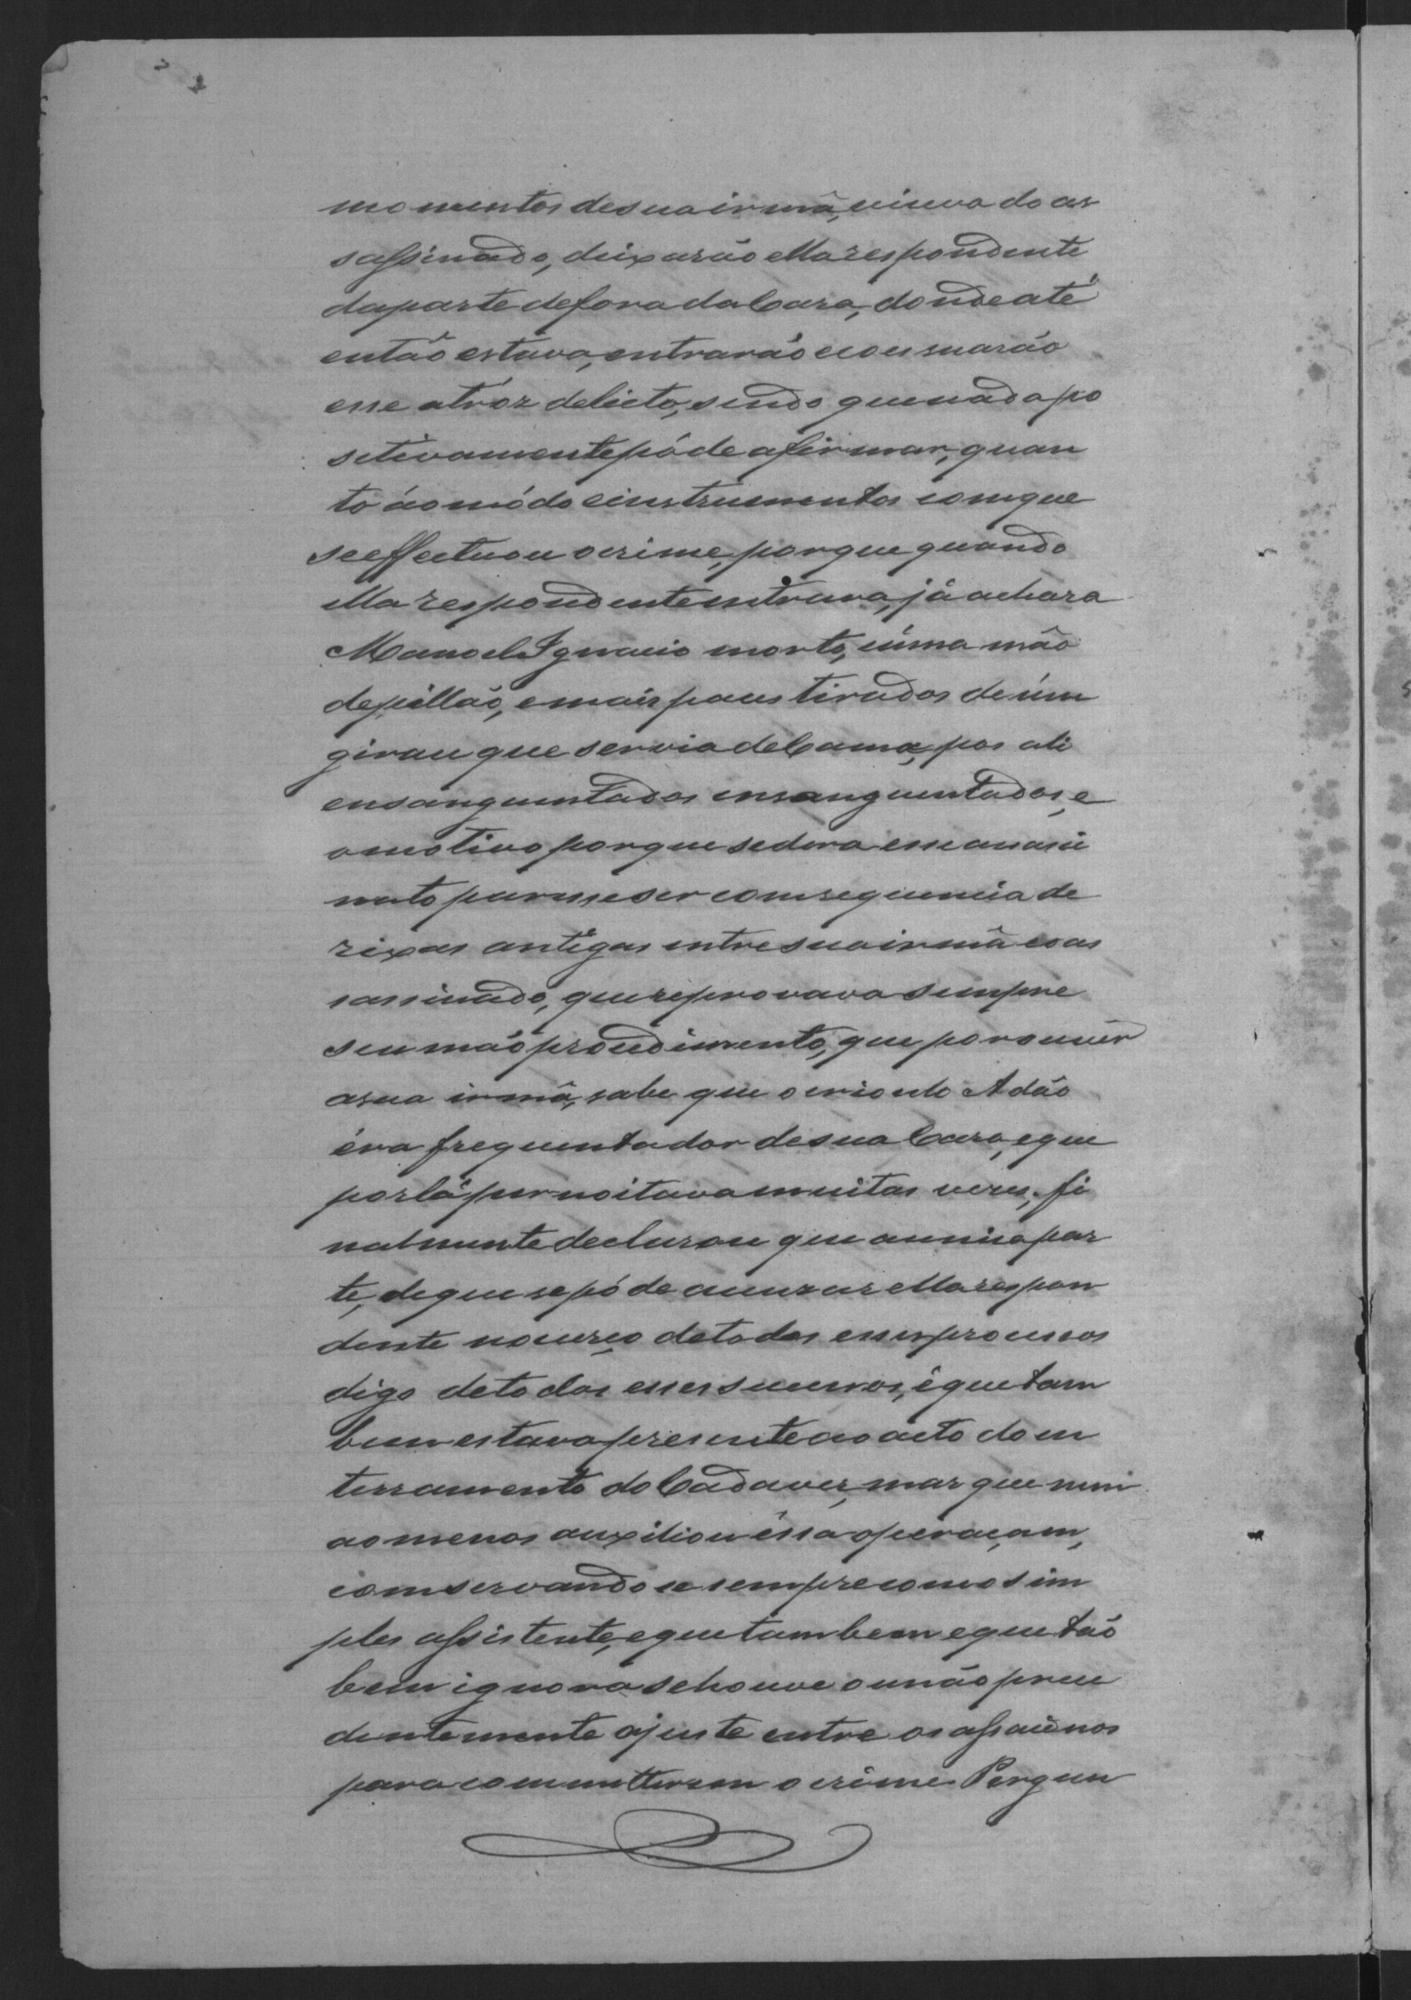 momentos de sua irmã, viuva do as
sassinado, deixarão ella respondente
da parte de fora da Casa, donde até
então estava, entrarão e consumarão
esse atróz delicto, sendo que nada po
setivamente póde afirmar, quan
to áo módo e instrumentos com que
se effectuou o crime, porque quando
ella respondente entrara, já achara
Manoel Ignacio morto, e úma mão
de pillão, e mais paus tirados de úm
girau que servia de Cama, por ali
ensanguentados ensanguentados, e
o motivo porque se dera esse assassi
nato parece ser comsequencia de
rixas antigas entre sua irmã e o as
sassinado, que reprovava sempre
seu máo procedimento, que por ouvir
a sua irmã, sabe que o crioulo Adão
éra frequentador de sua Casa, e que
por lá pernoitava muitas vezes, fi
nalmente declarou que a unica par
te, de que se póde accuzar ella respon
dente no curço de todos esses processos
digo de todos esses sucessos, é que tam
bem estava presente ao acto do en
terramento do Cadaver, mas que nem
ao menos auxiliou éssa operaçam,
comservando se sempre como sim
ples assistente, e que tambem e que tão
bem ignora se houve ou não prece
dentemente ajuste entre os assacinos
para commetterem o crime. Pergun